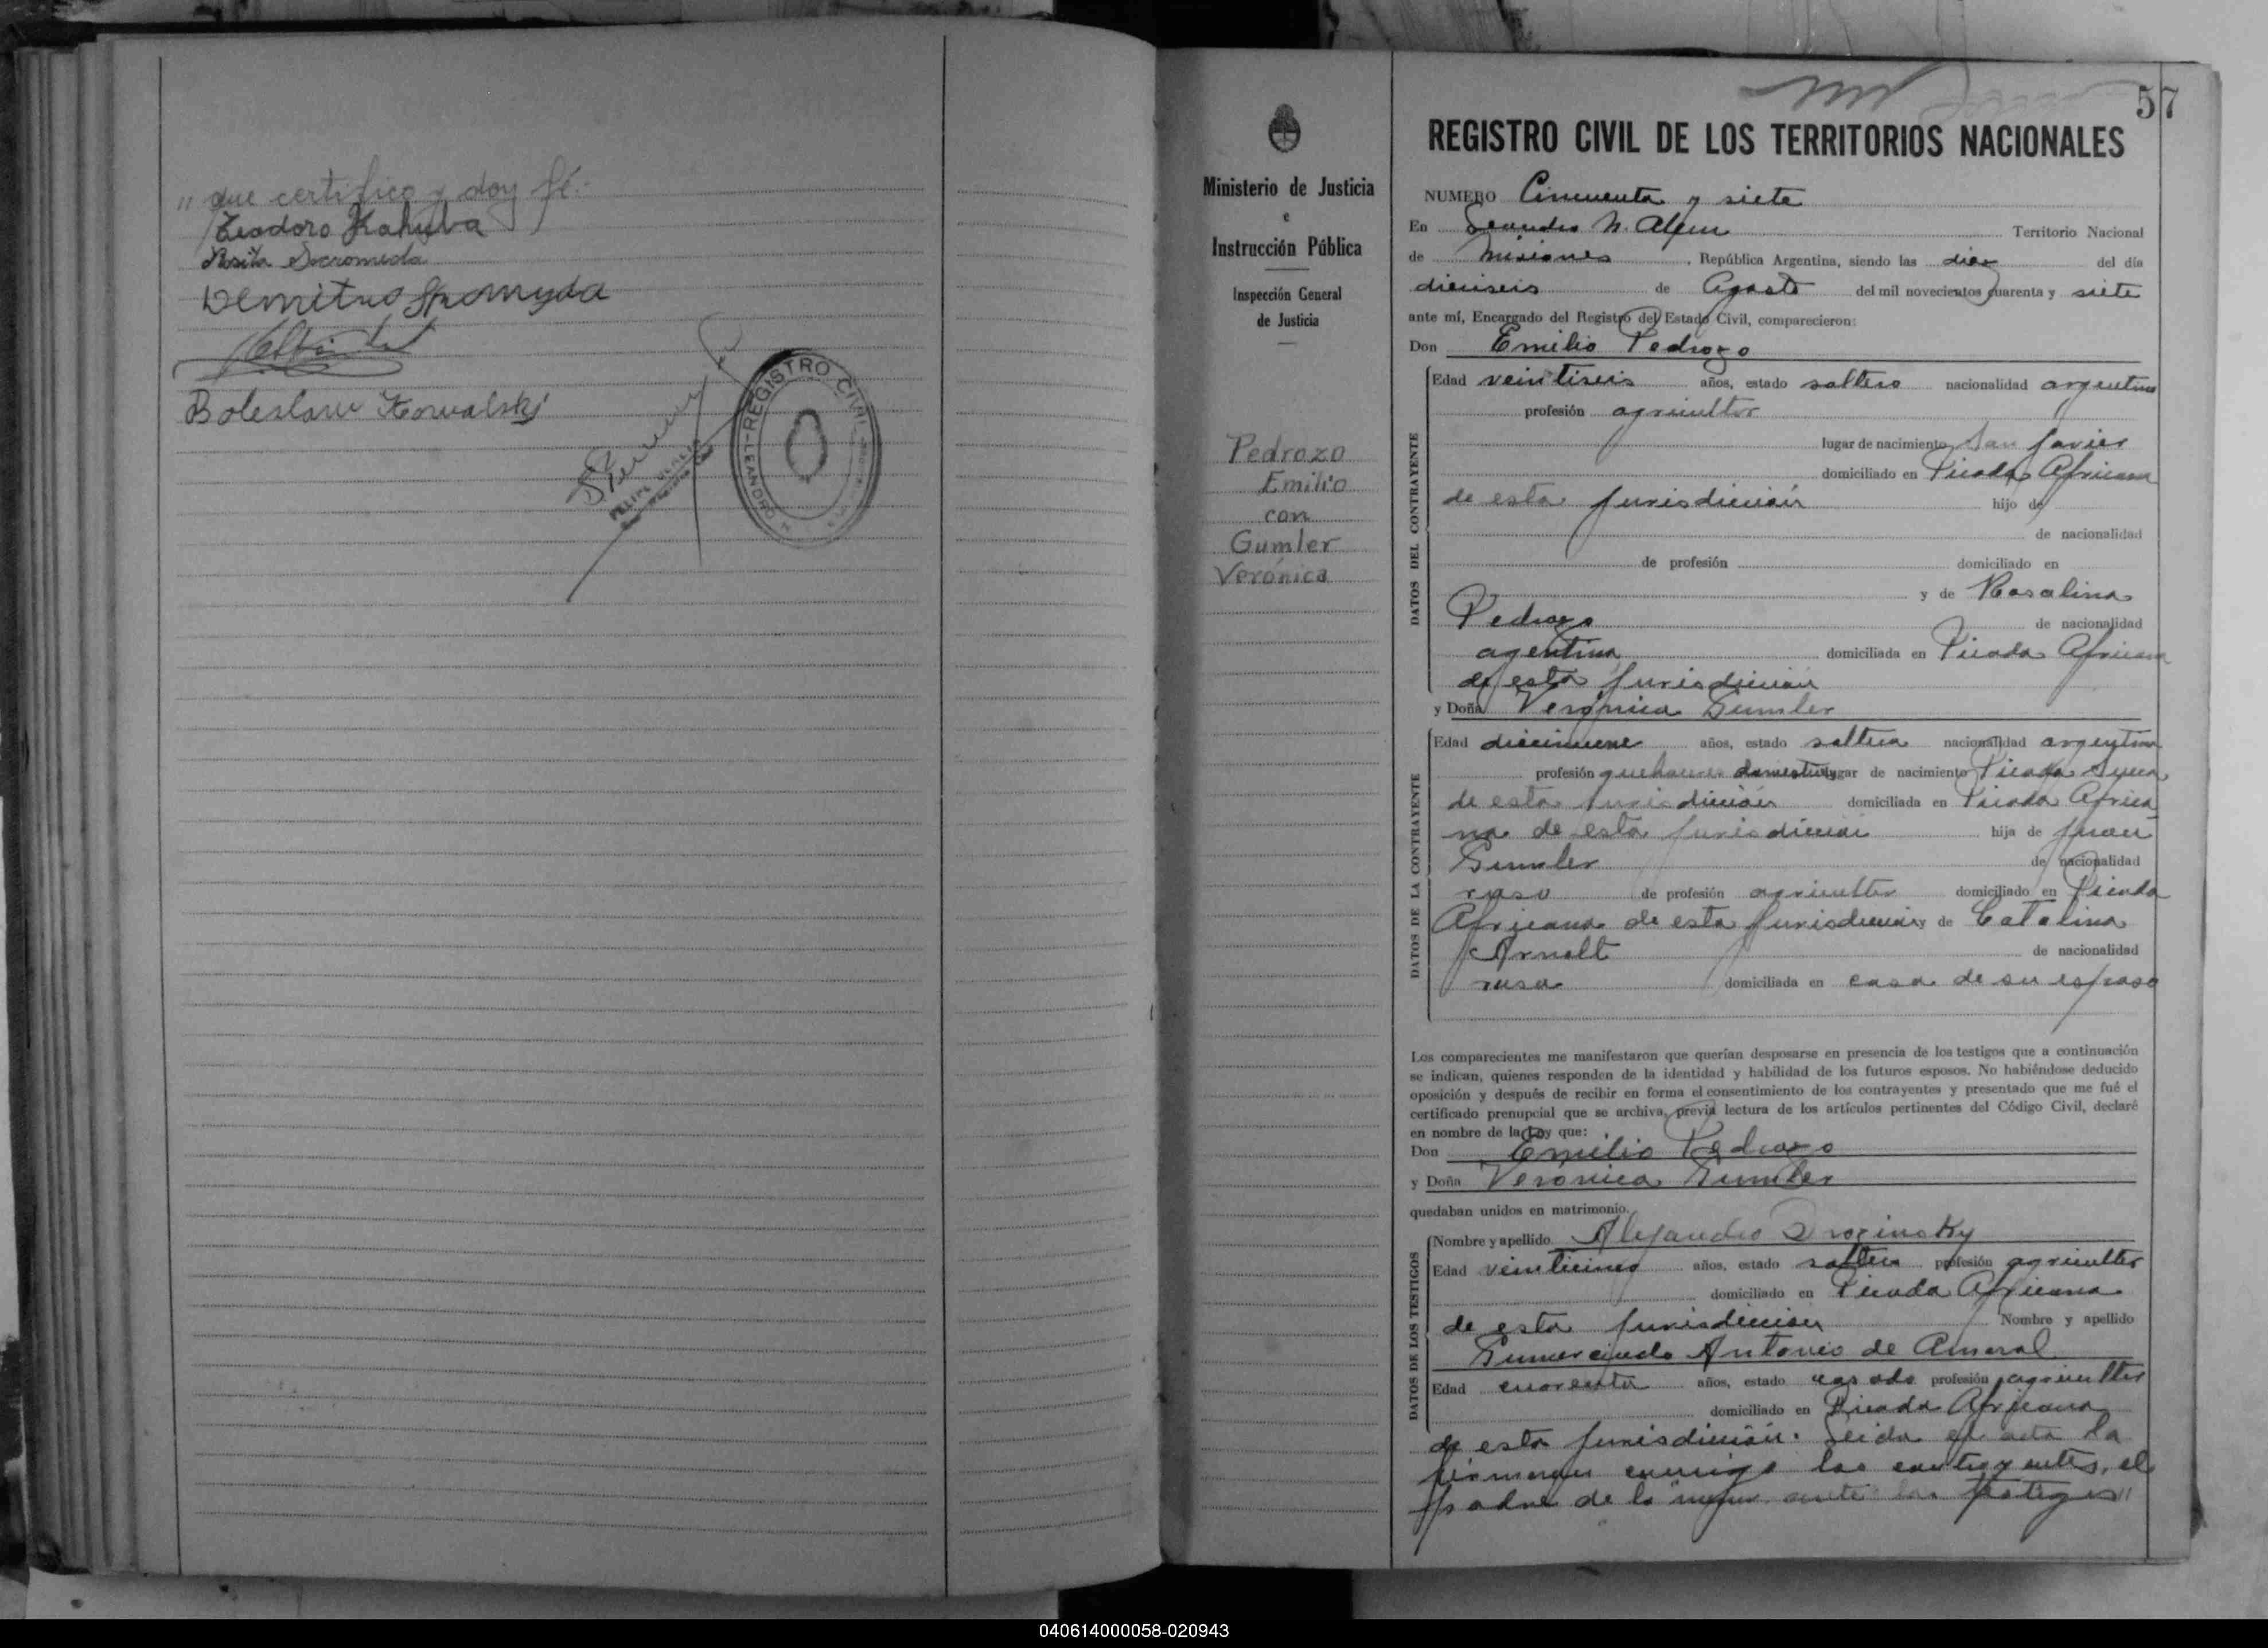 " que certifico y doy fé.-
Teodoro Kahuba
Demitro Skromyda
Boleslaw Kowalski
REGISTRO CIVIL
LEANDRO N.
57
Ministerio de Justicia
e
Instrucción Pública
Inspección General
de Justicia
Pedrozo
Emilio
con
Gumler
Verónica
REGISTRO CIVIL DE LOS TERRITORIOS NACIONALES
NUMERO Cincuenta y siete
En Leandro N. Alem Territorio Nacional
de Misiones, República Argentina, siendo las diez del día
dieciseis de Agosto del mil novecientos cuarenta y siete
ante mí, Encargado del Registro del Estado Civil, comparecieron:
Don Emilio Pedrozo
DATOS DEL CONTRAYENTE
Edad veintiseis años, estado soltero nacionalidad argentino
profesión agricultor
lugar de nacimiento San Javier
domiciliado en Picada Africana
de esta jurisdicción hijo de
de nacionalidad
de profesión domiciliado en
y de Rosalina
Pedrozo de nacionalidad
agentina domiciliada en Picada Africana
de esta jurisdicción
y Doña Verónica Gumler
DATOS DE LA CONTRAYENTE
Edad diecinueve años, estado soltera nacionalidad argentina
profesión quehaceres domesticos lugar de nacimiento Picada Sueca
de esta jurisdicción domiciliada en Picada Africa
na de esta jurisdicción hija de Juan
Gumler de nacionalidad
ruso de profesión agricultor domiciliado en Picada
Africana de esta jurisdicción y de Catalina
Arnolt de nacionalidad
rusa domiciliada en casa de su esposo
Los comparecientes me manifestaron que querían desposarse en presencia de los testigos que a continuación
se indican, quienes responden de la identidad y habilidad de los futuros esposos. No habiéndose deducido
oposición y después de recibir en forma el consentimiento de los contrayentes y presentado que me fué el
certificado prenupcial que se archiva, previa lectura de los artículos pertinentes del Código Civil, declaré
en nombre de la Ley que:
Don Emilio Pedrozo
y Doña Verónica Gumler
quedaban unidos en matrimonio.
DATOS DE LOS TESTIGOS
Nombre y apellido Alejandro Drozinsky
Edad veinticinco años, estado soltero profesión agricultor
domiciliado en Picada Africana
de esta jurisdicción Nombre y apellido
Gumercindo Antonio de Amaral
Edad cuarenta años, estado casado profesión agricultor
domiciliado en Picada Africana
de esta jurisdicción. Leida el acta la
firmaron conmigo los contrayentes, el
padre de la menor ante los testigos "
040614000058-020943